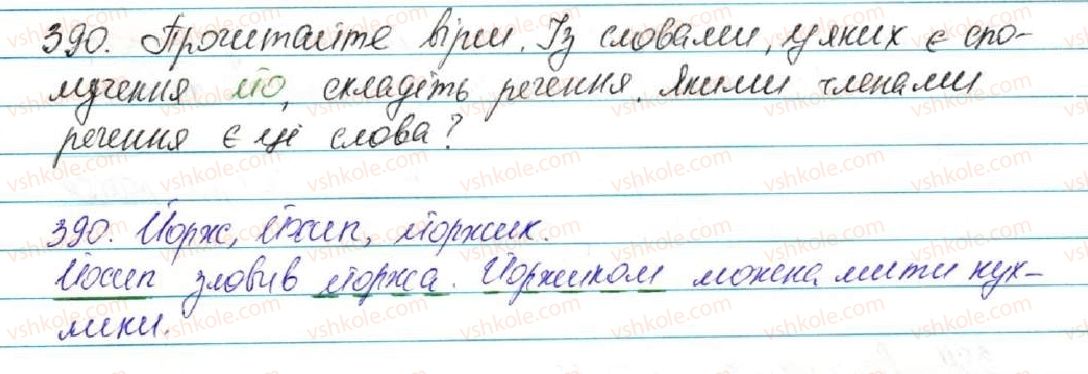 390. Прочитайте вірш. Із словами, у яких є спо-
лучення йо, складіть речення. Якими членами
речення є ці слова?
390. Йорж, Йосип, йоржик.
Йосип зловив йоржа. Йоржиком можна мити кух-
лики.